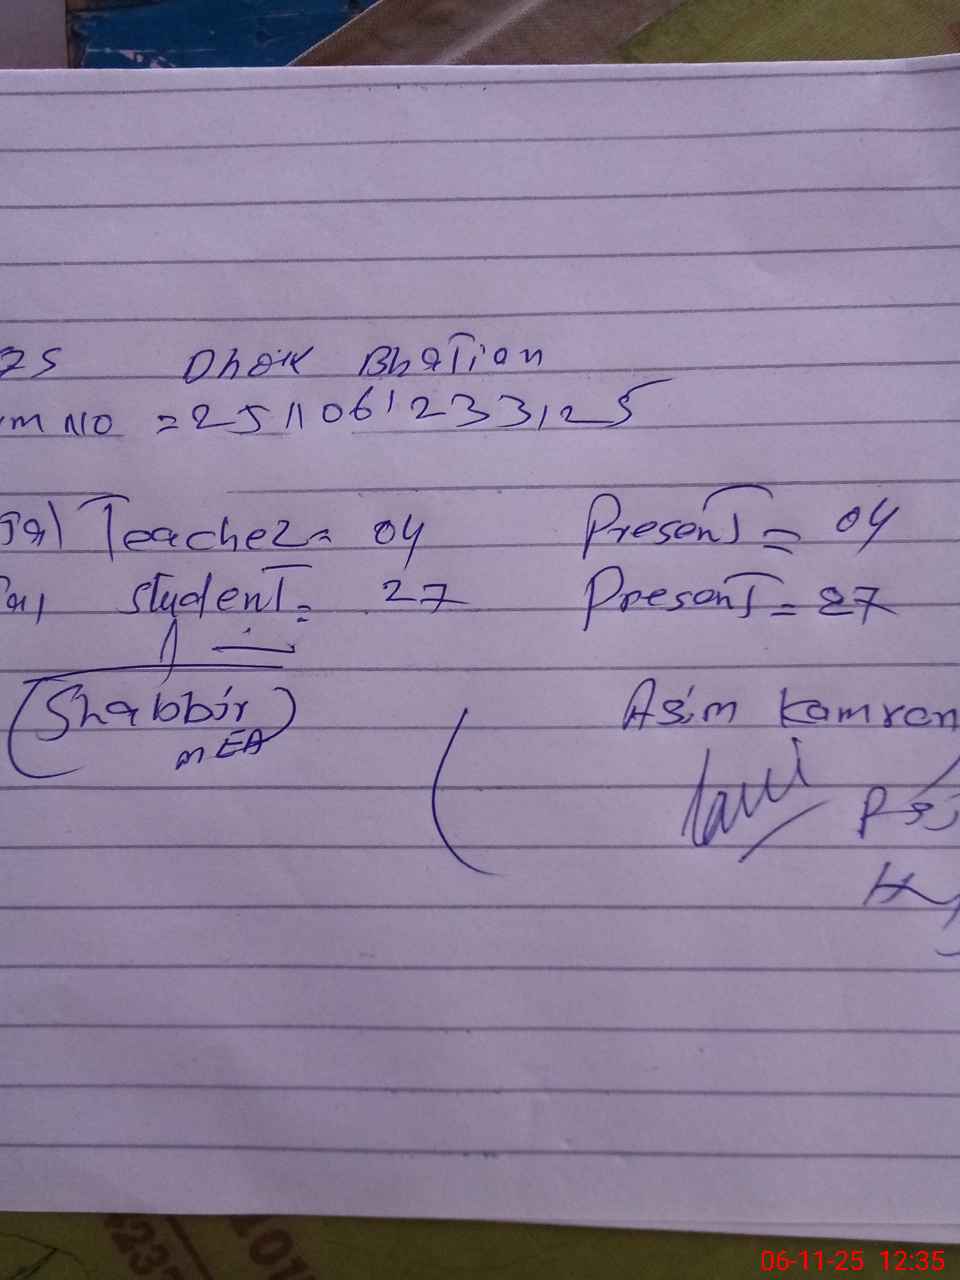 75 Dhok Bhatian
m No = 2511061233125
Teacher = 04 Present = 04
Student = 27 Present = 27
(Shabbir)
MEA
Asim Kamran
06-11-25 12:35